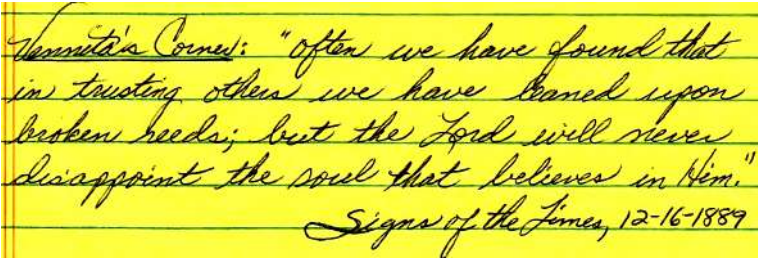 Vennita's Corner: "often we have found that
in trusting others we have leaned upon
broken reeds; but the Lord will never
disappoint the soul that believes in Him."
Signs of the Times, 12-16-1889